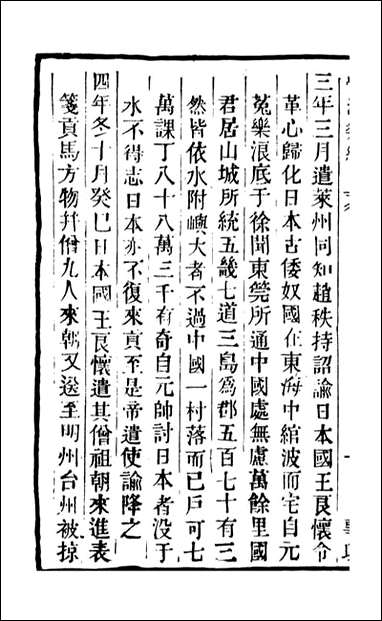 三年三月遣萊州同知趙秩持詔諭日本國王良懷令
革心歸化日本古倭奴國在東海中綰波而宅自元
菟樂浪底于徐聞東莞所通中國處無慮萬餘里國
君居山城所統五畿七道三島爲郡五百七十有三
然皆依水附嶼大者不過中國一村落而已戶可七
萬課丁八十八萬三千有奇自元帥討日本者没于
水不得志日本亦不復來貢至是帝遣使諭降之
四年冬十月癸巳日本國王良懷遣其僧祖朝來進表
箋貢馬方物幷僧九人來朝又送至明州台州被掠